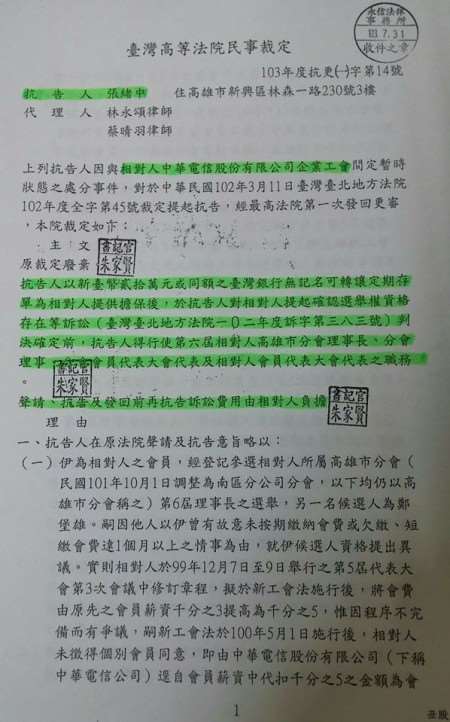 永信法律
事務所
103.7.31
收件之章
臺灣高等法院民事裁定
103年度抗更(一)字第14號
抗告人 張緒中 住高雄市新興區林森一路230號3樓
代理人 林永頌律師
蔡晴羽律師
上列抗告人因與相對人中華電信股份有限公司企業工會間定暫時
狀態之處分事件,對於中華民國102年3月11日臺灣臺北地方法院
102年度全字第45號裁定提起抗告,經最高法院第一次發回更審
,本院裁定如下:
主文
書記官
朱家賢
原裁定廢棄
抗告人以新臺幣貳拾萬元或同額之臺灣銀行無記名可轉讓定期存
單為相對人提供擔保後,於抗告人對相對人提起確認選舉權資格
存在等訴訟(臺灣臺北地方法院一0二年度訴字第三八三號)判
決確定前,抗告人得行使第六屆相對人高雄市分會理事長、分會
理事、分會會員代表大會代表及相對人會員代表大會代表之職務
。
書記官
朱家賢
聲請、抗告及發回前再抗告訴訟費用由相對人負擔
書記官
朱家賢
理由
一、抗告人在原法院聲請及抗告意旨略以:
(一)伊為相對人之會員,經登記參選相對人所屬高雄市分會(
民國101年10月1日調整為南區分公司分會,以下均仍以高
雄市分會稱之)第6屆理事長之選舉,另一名候選人為鄭
堡雄。嗣因他人以伊曾有故意未按期繳納會費或欠繳、短
繳會費達1個月以上之情事為由,就伊候選人資格提出異
議。實則相對人於99年12月7日至9日舉行之第5屆代表大
會第3次會議中修訂章程,擬於新工會法施行後,將會費
由原先之會員薪資千分之3提高為千分之5,惟因程序不完
備而有爭議,嗣新工會法於100年5月1日施行後,相對人
未徵得個別會員同意,即由中華電信股份有限公司(下稱
中華電信公司)逕自會員薪資中代扣千分之5之金額為會
1
丑股